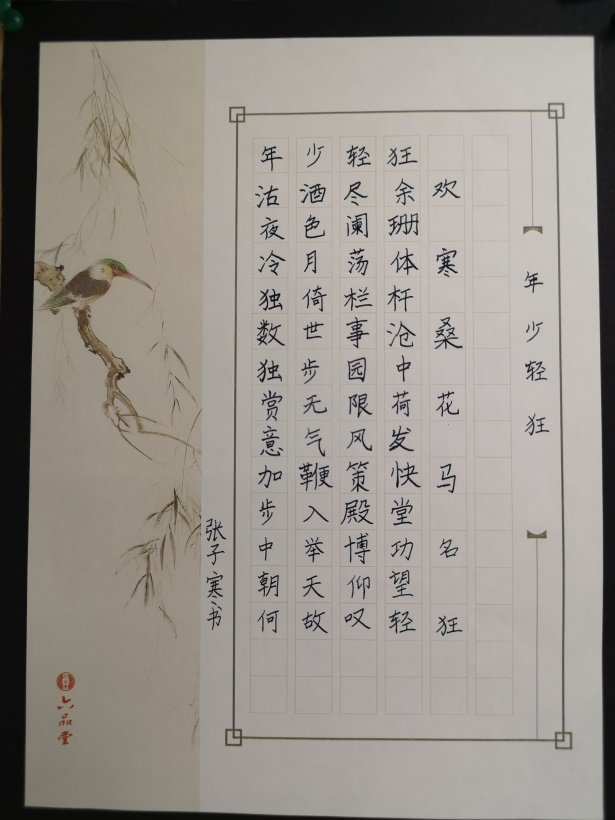 年少轻狂
年少轻狂
沽酒尽余欢
夜色阑珊
冷月荡体寒
独倚栏杆
数世事沧桑
独步园中
赏无限荷花
意气风发
加鞭策快马
步入殿堂
中举博功名
朝天仰望
何故叹轻狂
张子寒书
六品堂